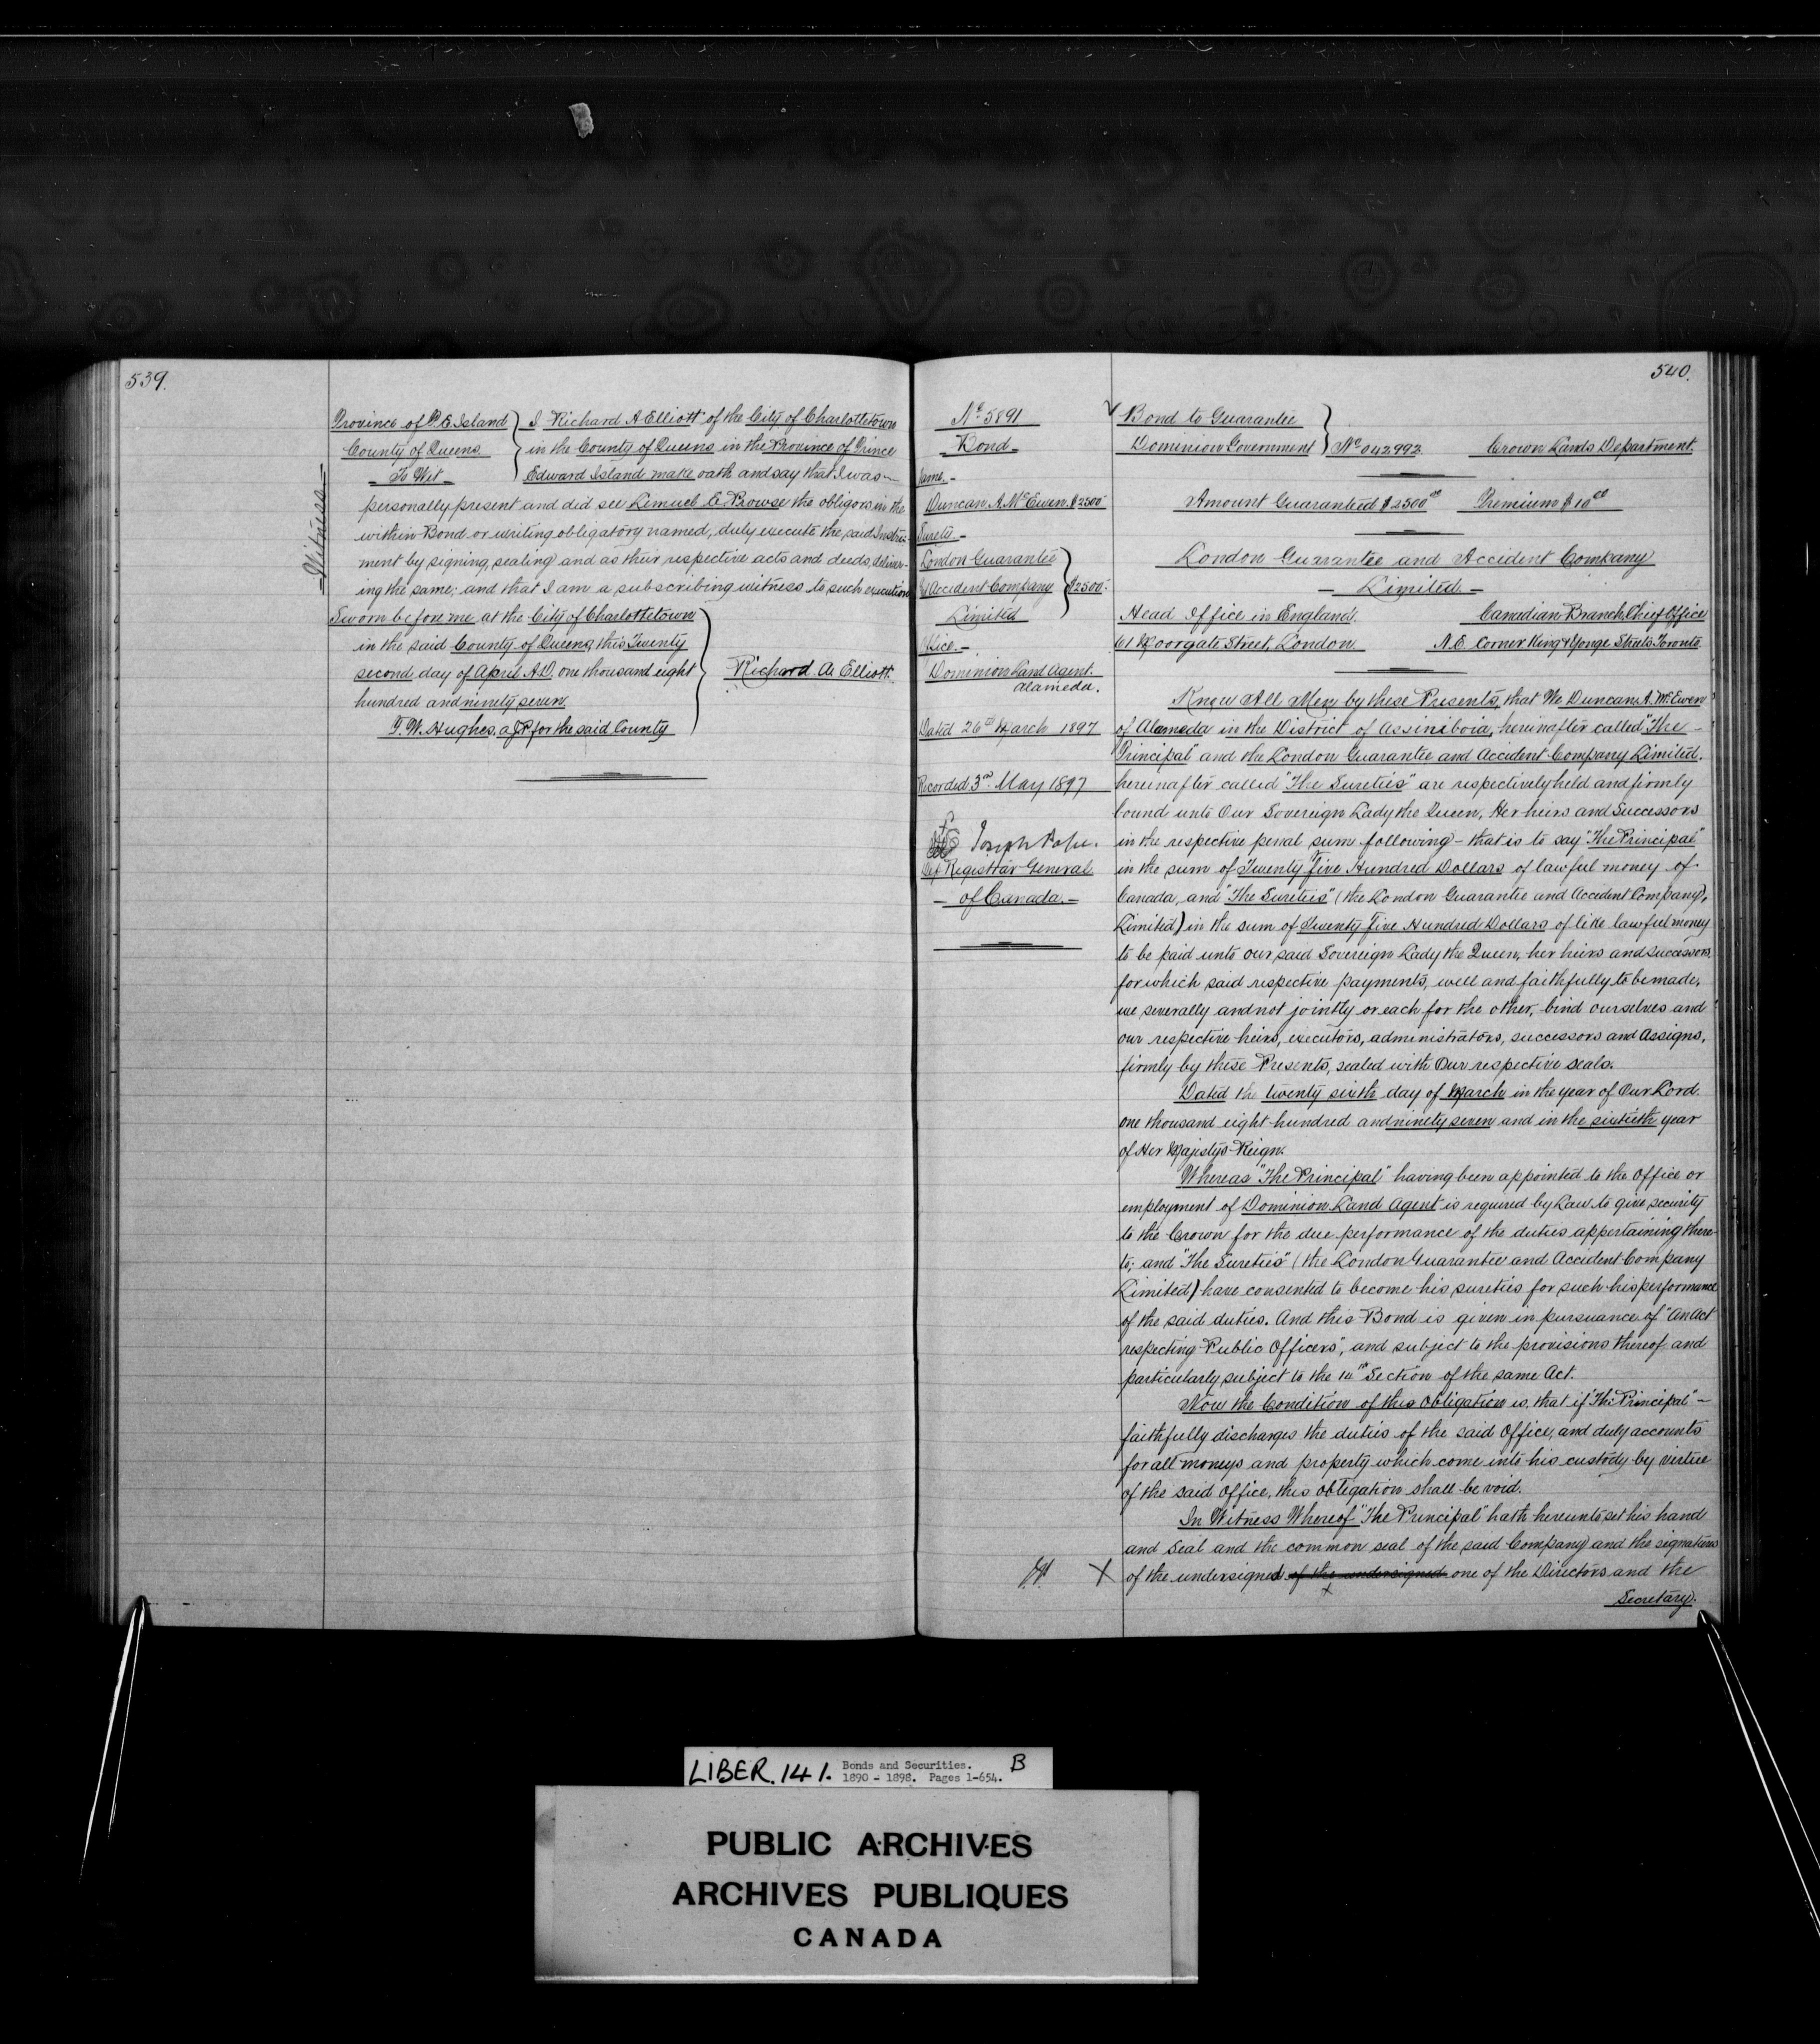 539.
Witness
Province of P.E. Island
County of Queens
To Wit
I Richard A Elliott of the City of Charlottetown
in the County of Queens in the Province of Prince
Edward Island make oath and say that I was
personally present and did see Lemuel E. Prowse the obligors in the
within Bond or writing obligatory named, duly execute the said Instru-
ment by signing, sealing and as their respective acts and deeds, deliver-
ing the same; and that I am a subscribing witness to such execution
Sworn before me at the City of Charlottetown
in the said County of Queens, this Twenty
second day of April A.D. one thousand eight
hundred and ninety seven.
Richard A. Elliott.
F. W. Hughes, a J.P. for the said County
540.
No 5891
Bond
Name.
Duncan A. McEwen $2500
Surety
London Guarantee
& Accident Company
Limited
$2500
Office.
Dominion Land Agent.
Alameda.
Dated 26th March 1897
Recorded 3rd May 1897
Joseph Pope.
Dep Registrar General
of Canada.
Bond to Guarantee
Dominion Government
No 042992
Crown Lands Department.
Amount Guaranteed $2500 00 Premium $10 00
London Guarantee and Accident Company
Limited
Head Office in England. Canadian Branch, Chief Office
61 Moorgate Street, London. N.E. Corner King & Yonge Streets Toronto.
Know All Men by these Presents, that We Duncan A. McEwen
of Alameda in the District of Assiniboia, hereinafter called "The
Principal" and the London Guarantee and Accident Company Limited.
hereinafter called "The Sureties" are respectively held and firmly
bound unto Our Sovereign Lady the Queen, Her heirs and Successors
in the respective penal sum following - that is to say "The Principal"
in the sum of Twenty five Hundred Dollars of lawful money of
Canada, and "The Sureties" (the London Guarantee and Accident Company,
Limited) in the sum of Twenty five Hundred Dollars of like lawful money
to be paid unto our said Sovereign Lady the Queen, her heirs and successors,
for which said respective payments, well and faithfully to be made,
we severally and not jointly or each for the other, bind ourselves and
our respective heirs, executors, administrators, successors and Assigns,
firmly by these Presents, sealed with Our respective seals.
Dated the twenty sixth day of March in the year of Our Lord.
one thousand eight hundred and ninety seven and in the sixtieth year
of Her Majestys Reign.
Whereas "The Principal" having been appointed to the Office or
employment of Dominion Land Agent is required by Law to give security
to the Crown for the due performance of the duties appertaining there-
to; and "The Sureties" (the London Guarantee and Accident Company
Limited) have consented to become his sureties for such his performance
of the said duties. And this Bond is given in pursuance of "An Act
respecting Public Officers", and subject to the provisions thereof and
particularly subject to the Section of the same Act.
Now the Condition of this Obligation is, that if "The Principal"
faithfully discharges the duties of the said Office, and duly accounts
for all moneys and property which come into his custody by virtue
of the said Office, this obligation shall be void.
In Witness Whereof "The Principal" hath hereunto set his hand
and Seal and the common seal of the said Company and the signatures
X of the undersigned of the undersigned one of the Directors and the
X
Secretary.
LIBER. 141. Bonds and Securities. B
1890 - 1898. Pages 1-654.
PUBLIC ARCHIVES
ARCHIVES PUBLIQUES
CANADA